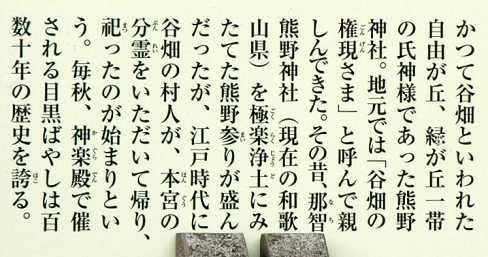 かつて谷畑といわれた
自由が丘、緑が丘一帯
の氏神様であった熊野
神社。地元では「谷畑の
権現さま」と呼んで親
しんできた。その昔、那智
熊野神社（現在の和歌
山県）を極楽浄土にみ
たてた熊野参りが盛ん
だったが、江戸時代に
谷畑の村人が、本宮の
分霊をいただいて帰り、
祀ったのが始まりとい
う。毎秋、神楽殿で催
される目黒ばやしは百
数十年の歴史を誇る。